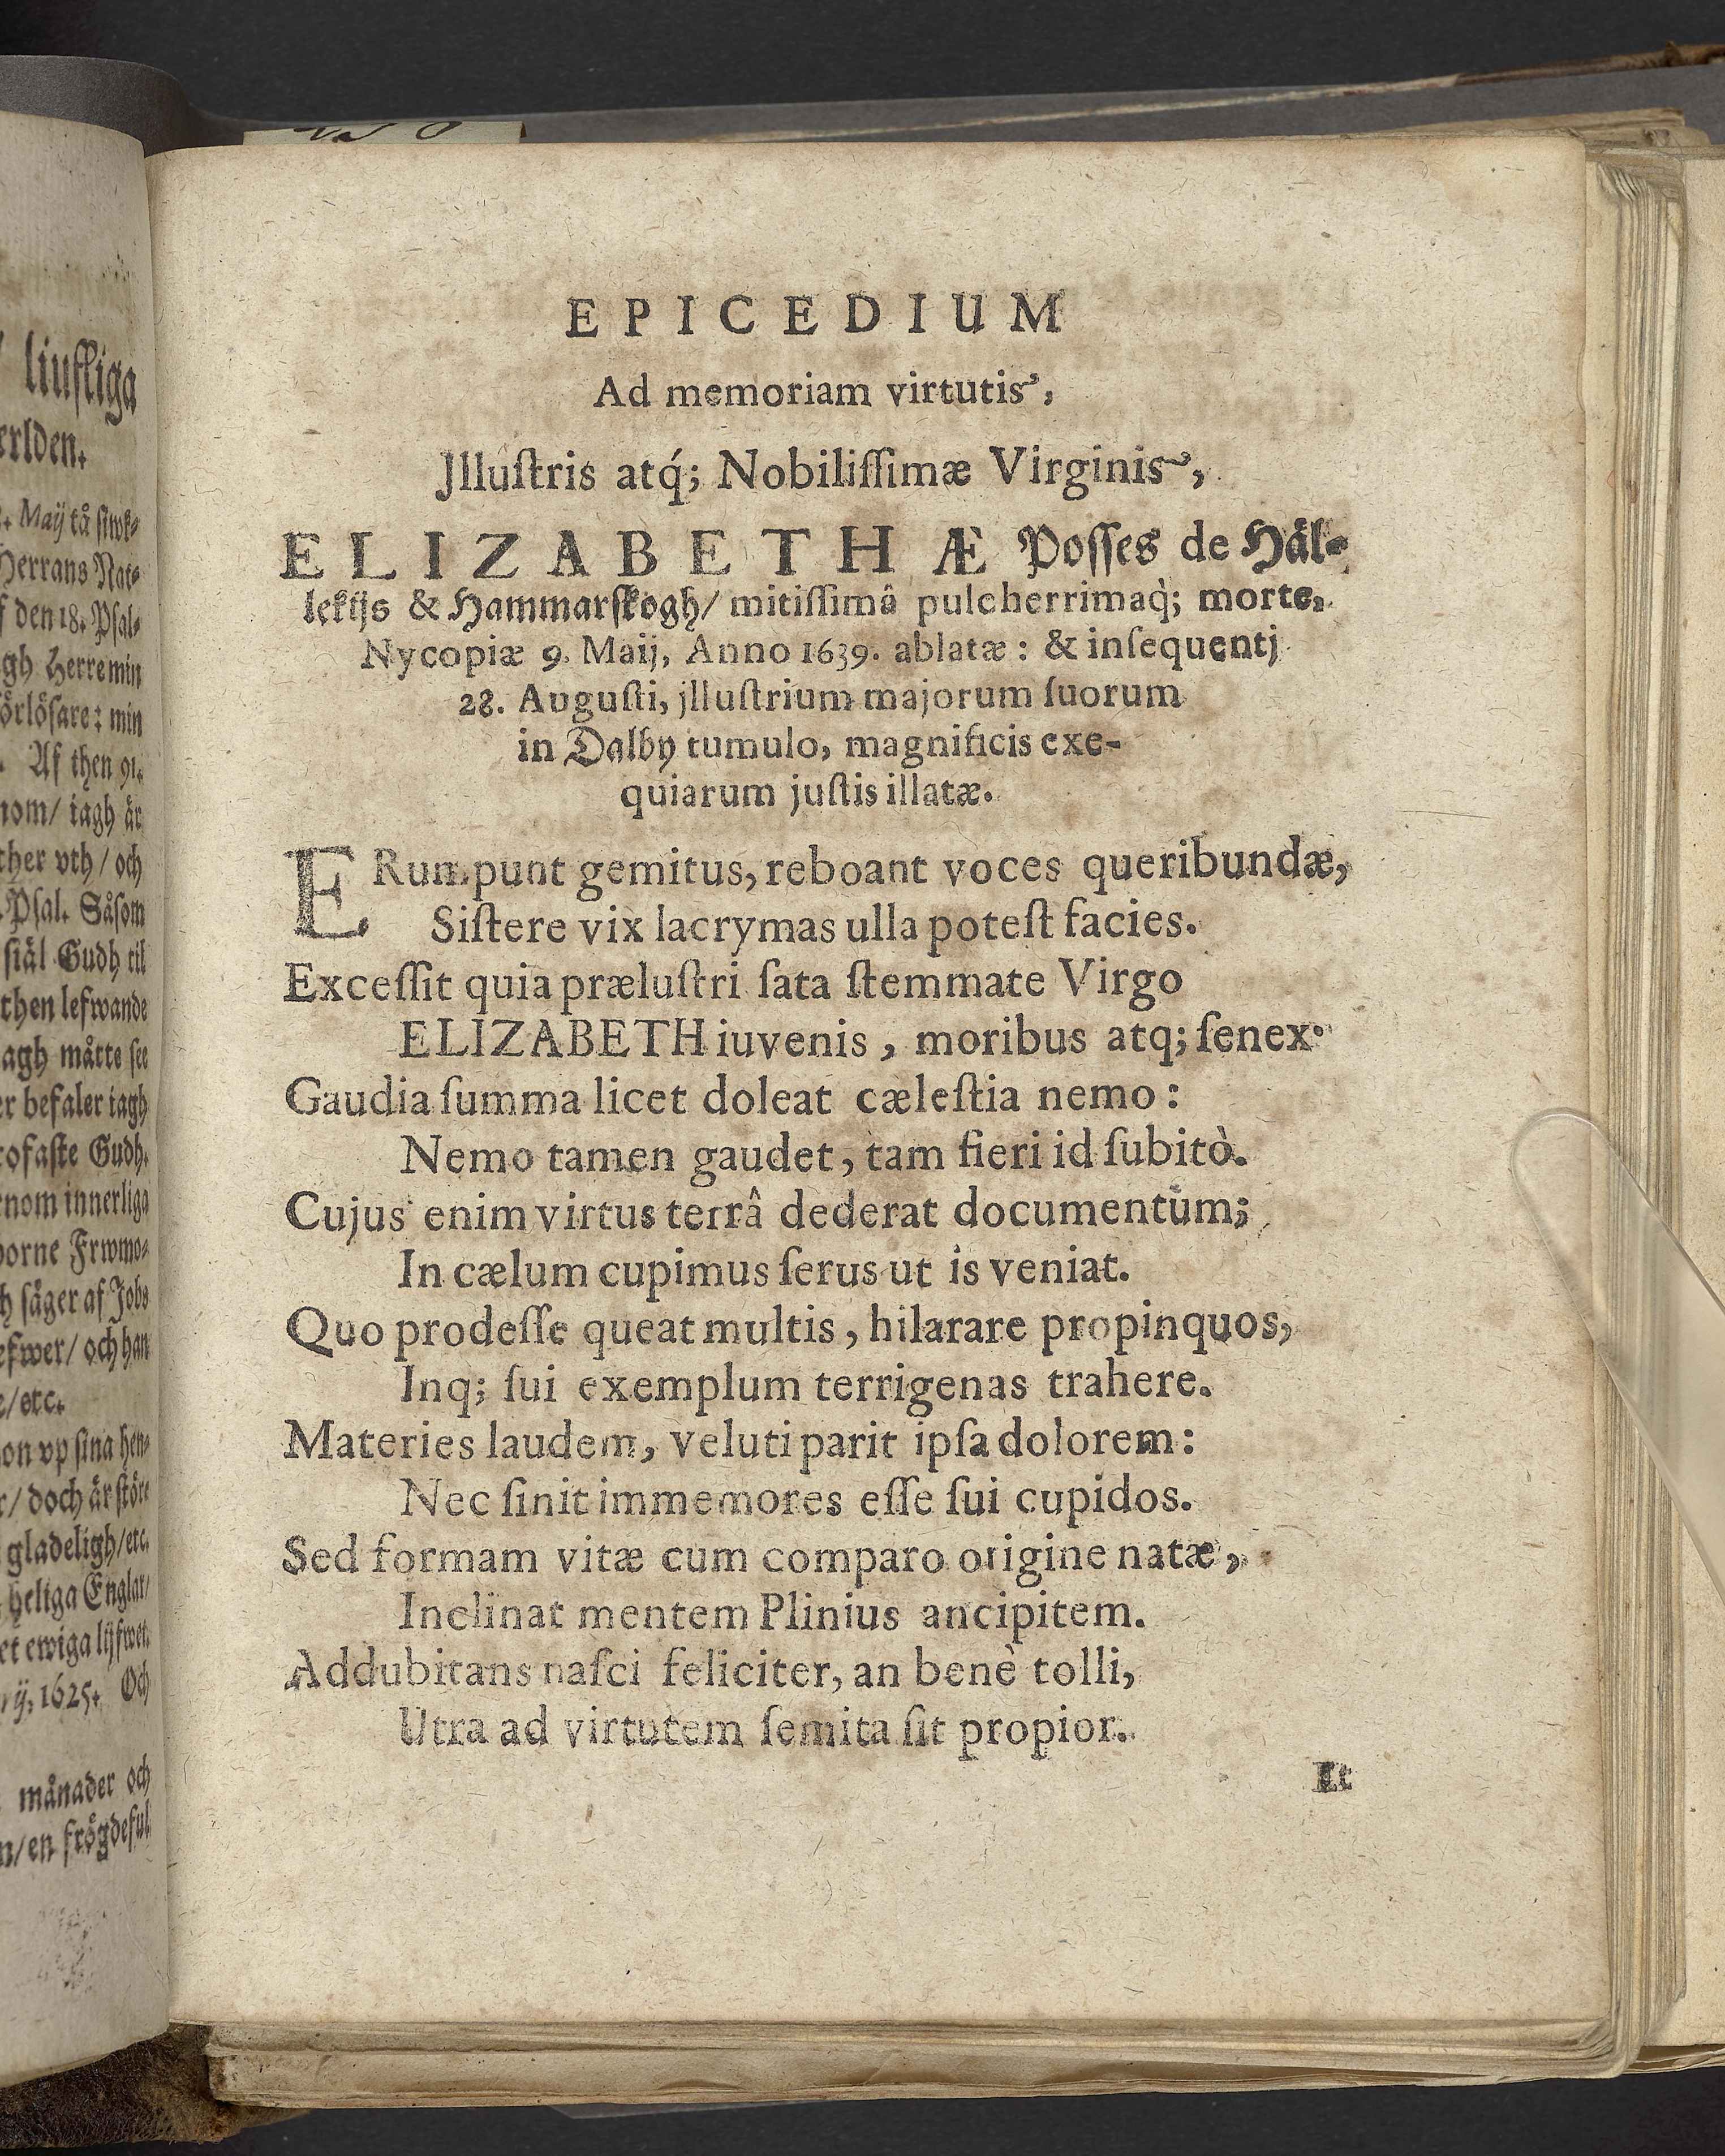 liufliga
erlden.
Maij tå siwk⸗
Herrans Nat⸗
f den 18. Psal⸗
gh Herre min
örlösare: min
Af then 91.
nom/ iagh är
ther vth/ och
Psal. Såsom
siäl Gudh til
then lefwande
agh måtte see
er befaler iagh
rofaste Gudh.
nom innerliga
borne Frwmo⸗
h säger af Jobs
efwer/ och han
e/etc.
on vp sina hen⸗
r/ doch är störe
gladeligh/etc.
heliga Englar/
et ewiga lijfwet.
ij, 1625. Och
månader och
n/en frögdeful
EPICEDIUM
Ad memoriam virtutis,
Jlluſtris atq́; Nobiliſſimæ Virginis,
ELIZABETHÆ Poſſes de Häl⸗
lekijs & Hammarſkogh/ mitiſſimâ pulcherrimaq̀; morte,
Nycopiæ 9. Maij, Anno 1639. ablatæ: & inſequentj
28. Auguſti, jlluſtrium majorum ſuorum
in Dalby tumulo, magnificis exe-
quiarum juſtis illatæ.
ERumpunt gemitus, reboant voces queribundæ,
Siſtere vix lacrymas ulla poteſt facies.
Exceſſit quia præluſtri ſata ſtemmate Virgo
ELIZABETH iuvenis, moribus atq; ſenex.
Gaudia ſumma licet doleat cæleſtia nemo:
Nemo tamen gaudet, tam fieri id ſubitò.
Cujus enim virtus terrâ dederat documentum;
In cælum cupimus ſerus ut is veniat.
Quo prodeſſe queat multis, hilarare propinquos,
Inq; ſui exemplum terrigenas trahere.
Materies laudem, veluti parit ipſa dolorem:
Nec ſinit immemores eſſe ſui cupidos.
Sed formam vitæ cum comparo origine natæ,
Inclinat mentem Plinius ancipitem.
Addubitans naſci feliciter, an benè tolli,
Utra ad virtutem ſemita ſit propior.
Et